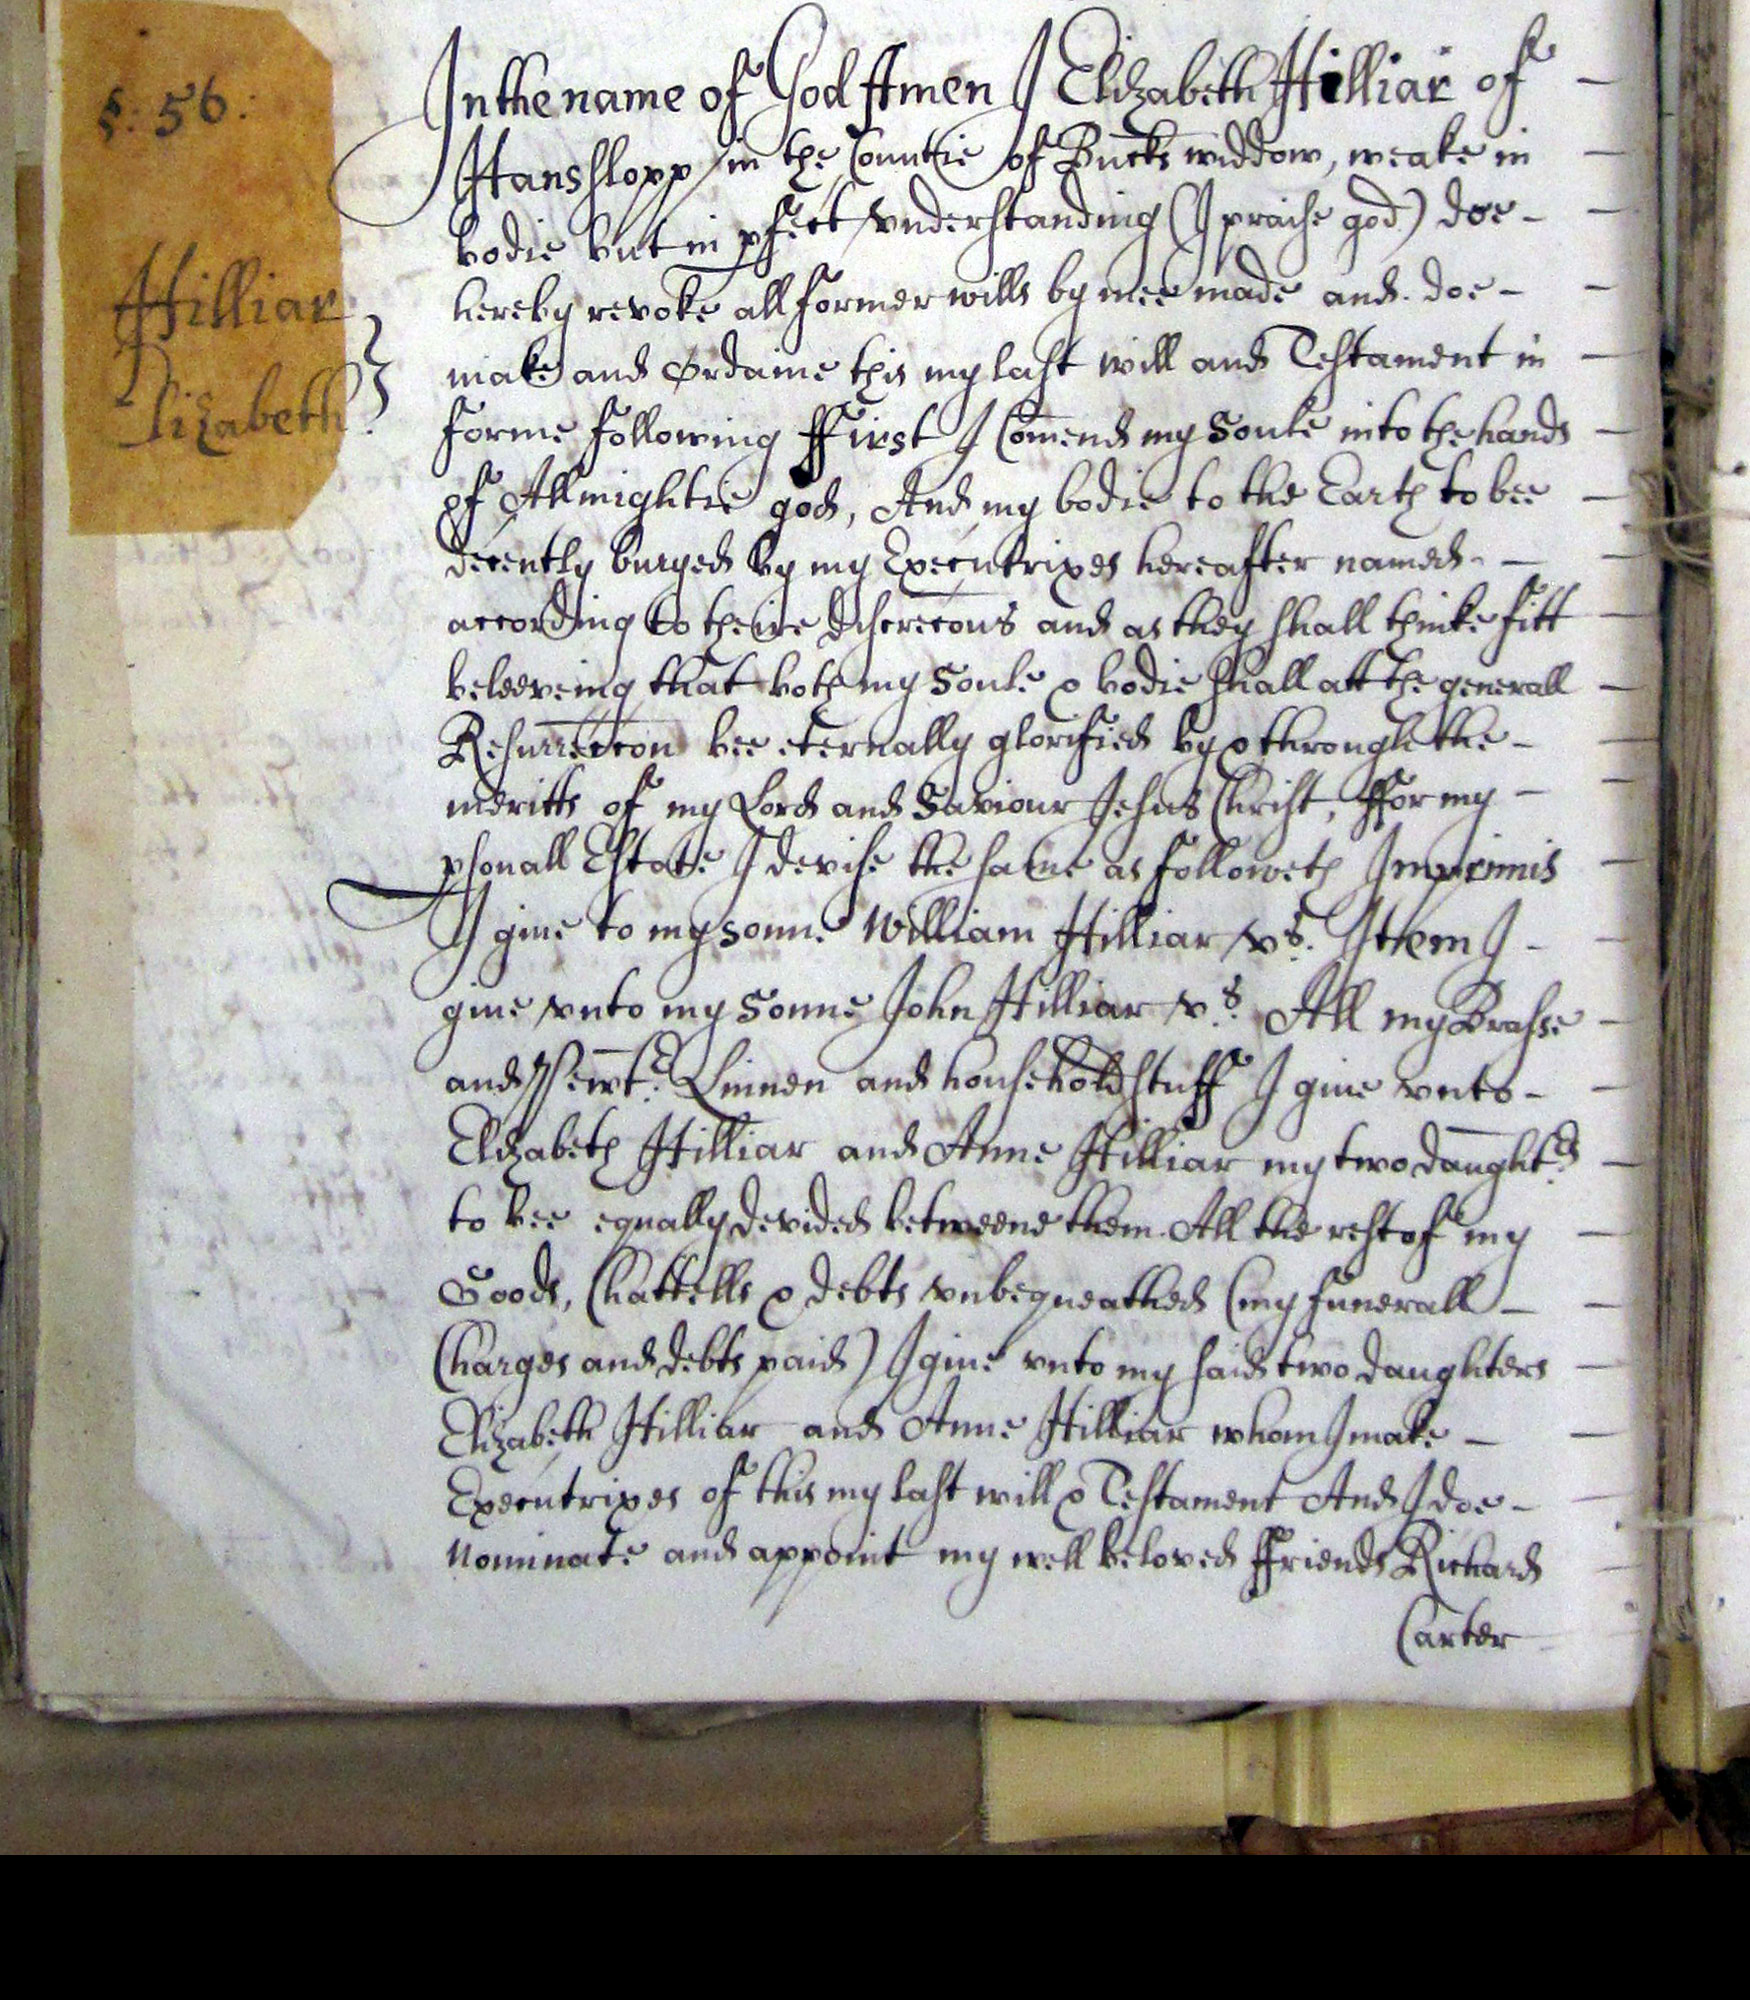 §: 56:
Hilliar
Elizabeth.
In the name of God Amen I Elizabeth Hilliar of
Hanshlopp in the Countie of Bucks widdow, weake in
bodie but in pfect vnderstanding (I praise god) doe
hereby revoke all former wills by mee made and doe
make and Ordaine this my last will and Testament in
forme following ffirst I Com̄end my Soule into the hands
of Allmightie god, And my bodie to the Earth to bee
decently buryed by my Executrixes hereafter named
according to theire discrecōns and as they shall thinke fitt
beleeveing that both my Soule & bodie shall att the generall
Resurreccōn bee eternally glorified by & through the
meritts of my Lord and Saviour Jesus Christ, ffor my
psonall Estate I devise the same as followeth Imprimis
I giue to my sonne William Hilliar vs. Item I
giue vnto my Sonne John Hilliar vs. All my Brasse
and Pewt̄er Linnen and household stuff I giue vnto
Elizabeth Hilliar and Anne Hilliar my two daught̄ers
to bee equally devided betweene them. All the rest of my
Goods, Chattells & debts vnbequeathed (my funerall
Charges and debts paid) I giue vnto my said two daughters
Elizabeth Hilliar and Anne Hilliar whom I make
Executrixes of this my last will & Testament And I doe
Nominate and appoint my well beloved ffriends Richard
Carter